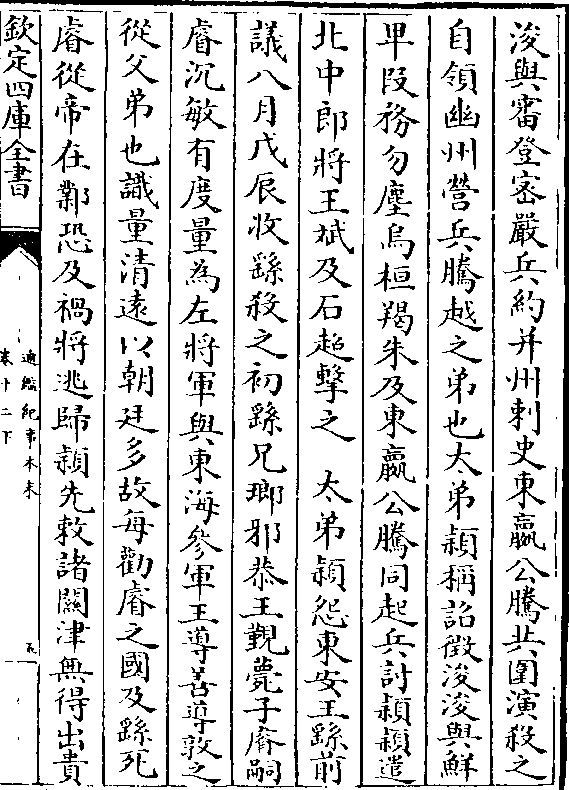 浚與審登密嚴兵約并州刺史東嬴公騰共圍演殺之
自領幽州營兵騰越之弟也太弟穎稱詔徵浚浚與鮮
卑段務勿塵烏桓羯朱及東嬴公騰同起兵討穎穎遣
北中郎將王斌及石超擊之　太弟穎怨東安王繇前
議八月戊辰收繇殺之初繇兄瑯邪恭王覲薨子睿嗣
睿沉敏有度量為左將軍與東海參軍王導善導敦之
從父弟也識量清遠以朝廷多故每勸睿之國及繇死
睿從帝在鄴恐及禍將逃歸穎先敕諸關津無得出貴
欽定四庫全書
通鑑紀事本末
卷十二下